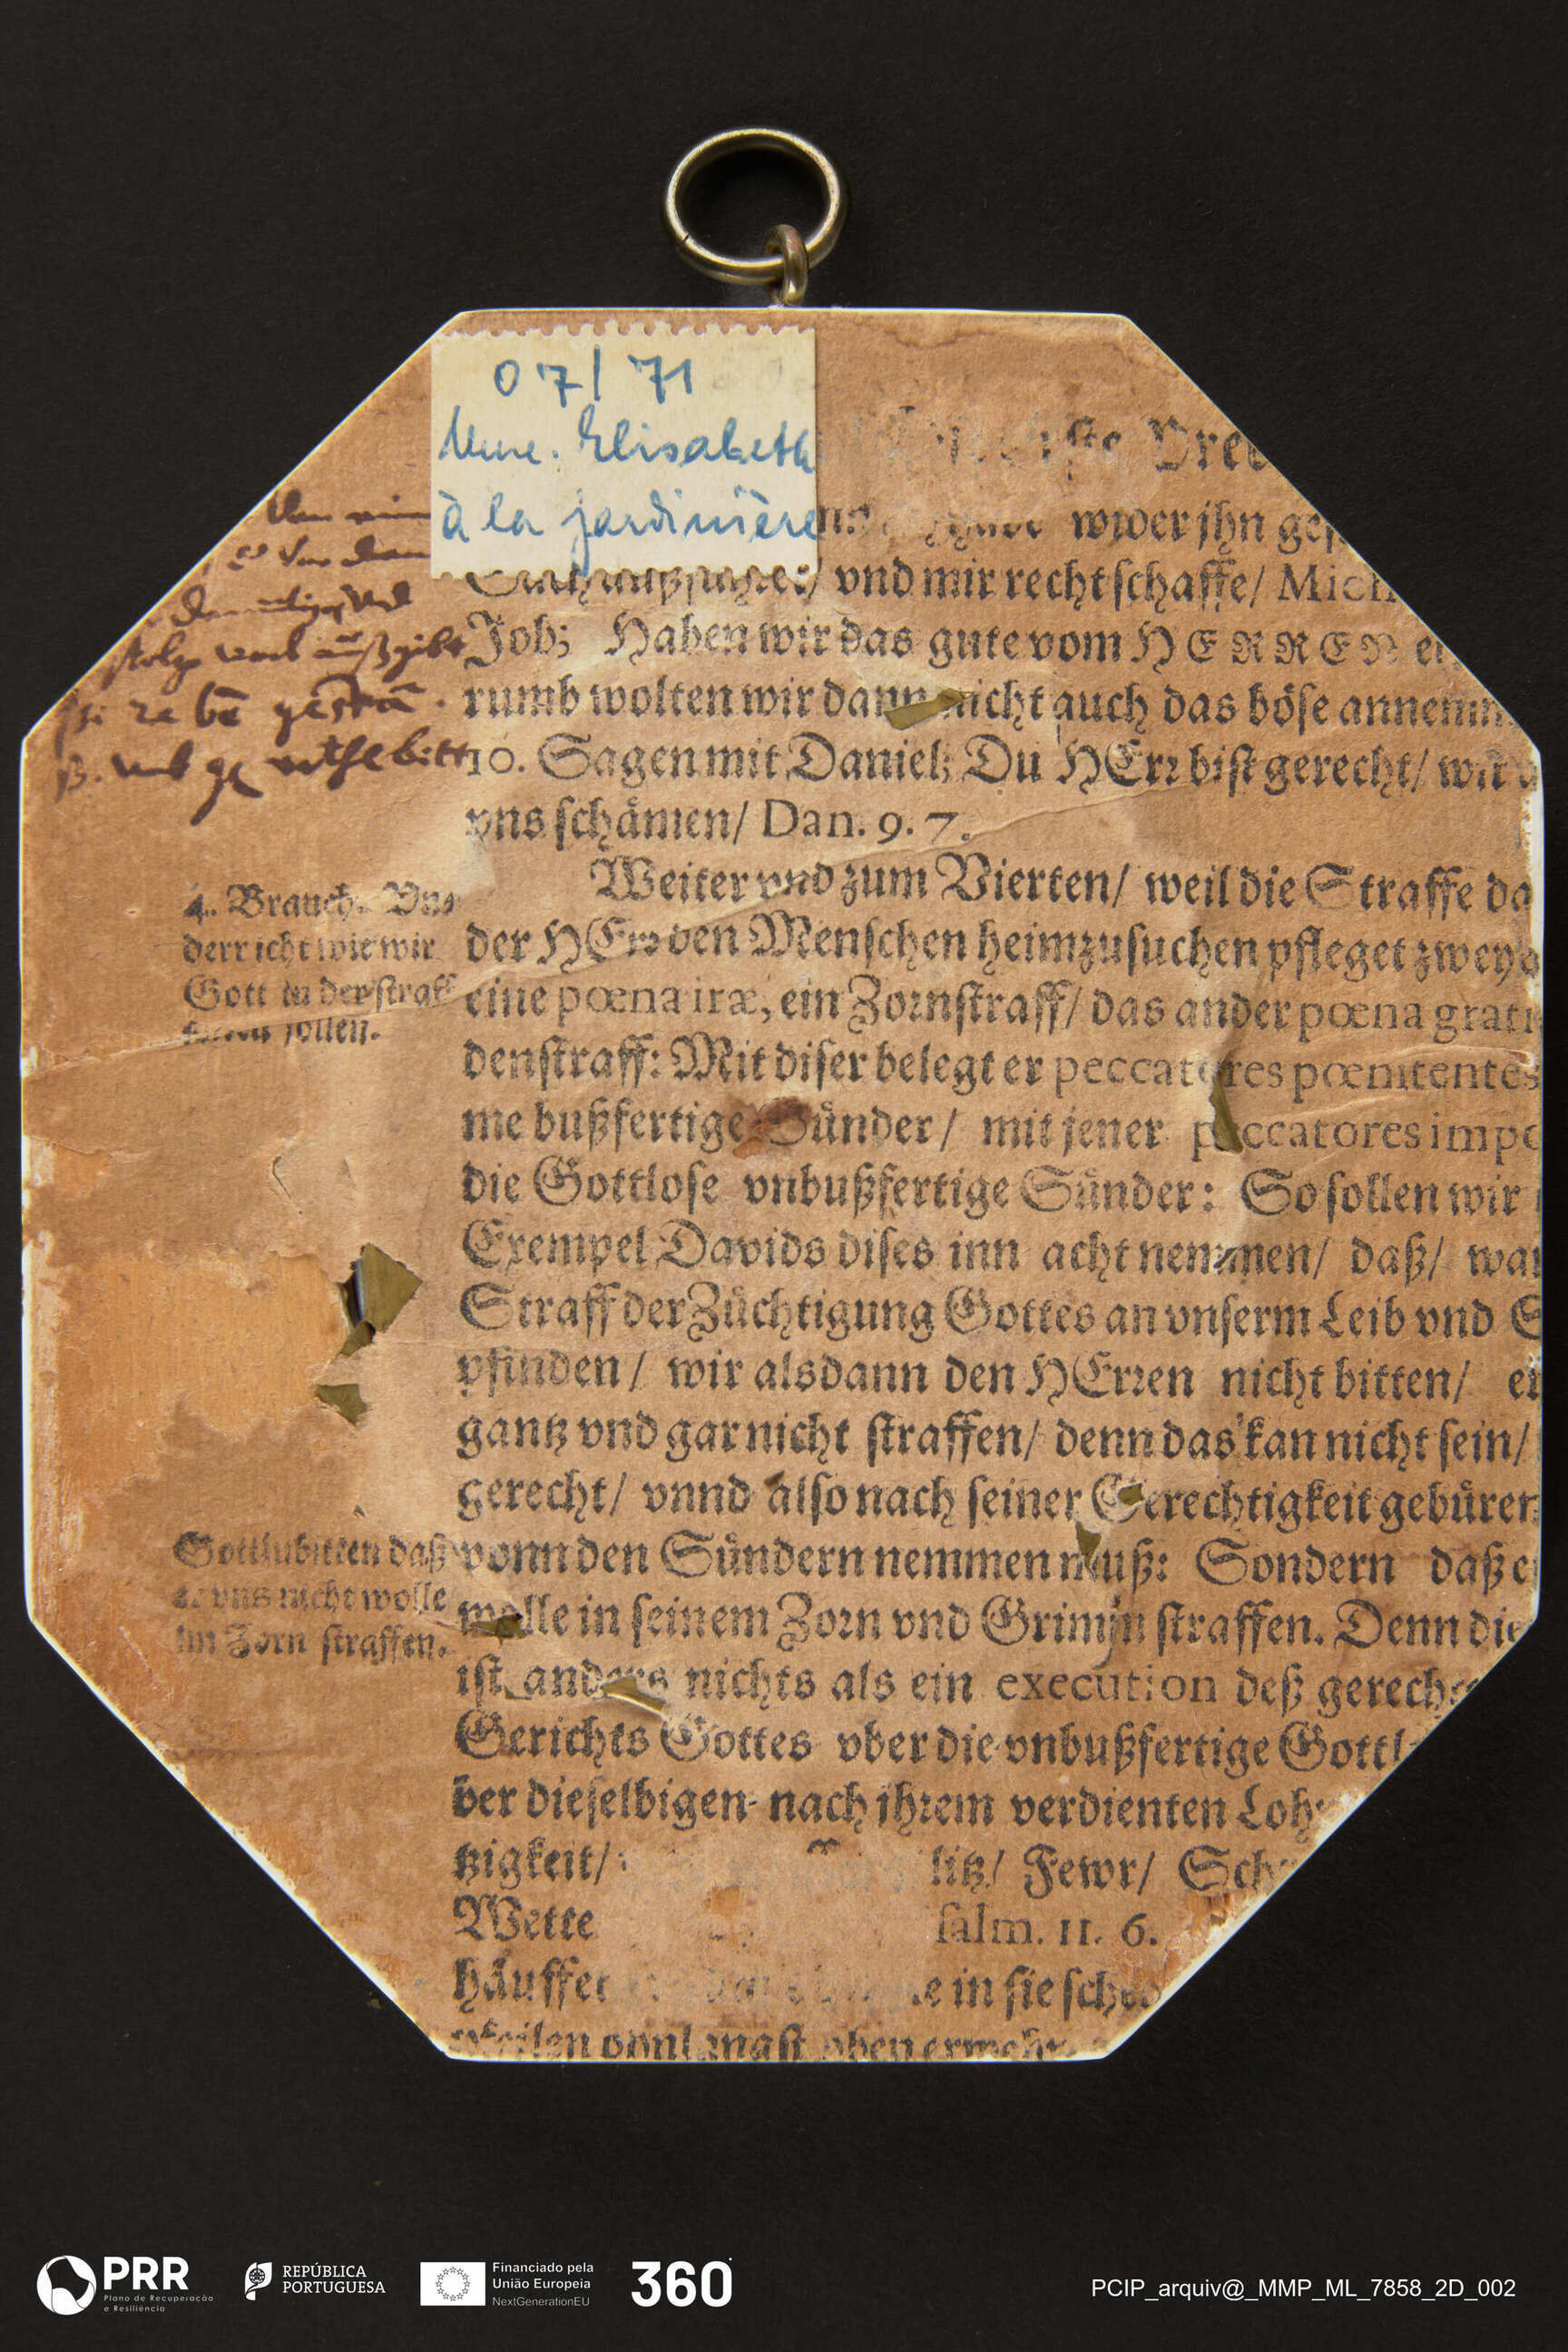 07/71
Mme. Elisabeth
à la jardinière
wider jhn
vnd mir recht schaffe/
Job; Haben wir das gute vom HERREN
rumb wolten wir dann nicht auch das böse annemm
10. Sagen mit Daniel; Du HErr bist gerecht/
vns schämen/ Dan. 9. 7.
4. Brauch. Vns
derricht wie wir
Gott in der straff
sollen.
Weiter vnd zum Vierten/ weil die Straffe da
der HErr den Menschen heimzusuchen pfleget zwey
eine pœna iræ, ein Zornstraff/ das ander pœna grati
denstraff: Mit diser belegt er peccatores pœnitentes
me bußfertige Sünder/ mit jener peccatores impœ
die Gottlose vnbußfertige Sünder: So sollen wir
Exempel Davids dises inn acht nemmen/ daß/ wa
Straff der Züchtigung Gottes an vnserm Leib vnd S
pfinden/ wir alsdann den HErren nicht bitten/ er
gantz vnd gar nicht straffen/ denn das kan nicht sein/
gerecht/ vnnd also nach seiner Gerechtigkeit gebüren
Gott zubitten daß
er vns nicht wolle
im Zorn straffen.
vonn den Sündern nemmen muß: Sondern daß e
wolle in seinem Zorn vnd Grimm straffen. Denn die
ist anders nichts als ein execution deß gerech
Gerichts Gottes vber die vnbußfertige Gottl
ber dieselbigen nach ihrem verdienten Loh
tzigkeit/ litz/ Fewr/ Sch
Wette salm. 11. 6.
häuffe in sie sch
PRR
Plano de Recuperação
e Resiliência
REPÚBLICA
PORTUGUESA
Financiado pela
União Europeia
NextGenerationEU
360
PCIP_arquiv@_MMP_ML_7858_2D_002